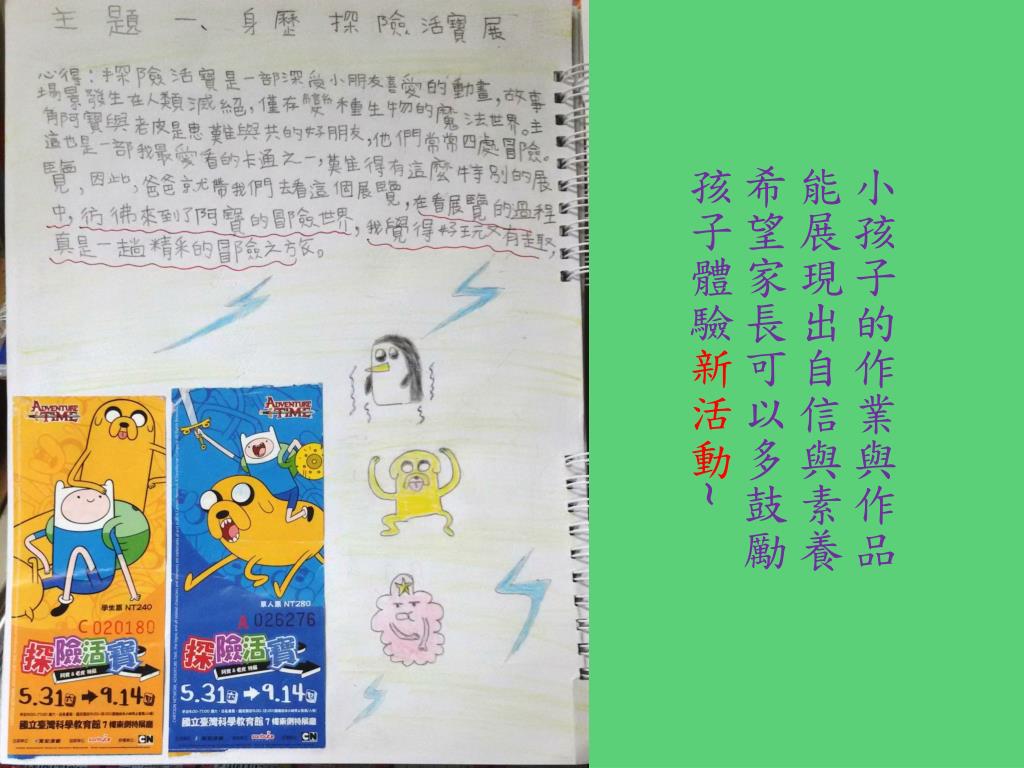 主題一、身歷探險活寶展
心得:探險活寶是一部深受小朋友喜愛的動畫,故事
場景發生在人類滅絕,僅存變種生物的魔法世界。主
角阿寶與老皮是患難與共的好朋友,他們常常四處冒險。
這也是一部我最愛看的卡通之一,難得有這麼特別的展
覽,因此,爸爸就帶我們去看這個展覽,在看展覽的過程
中,彷彿來到了阿寶的冒險世界,我覺得好玩又有趣,
真是一趟精采的冒險之旅。
ADVENTURE TIME
學生票 NT240
C 020180
探險活寶
阿寶&老皮 特展
5.31六➡9.14日
國立臺灣科學教育館 7樓東側特展廳
CN
ADVENTURE TIME
單人票 NT280
A 026276
探險活寶
阿寶&老皮 特展
5.31六➡9.14日
國立臺灣科學教育館 7樓東側特展廳
CN
小孩子的作業與作品
能展現出自信與素養
希望家長可以多鼓勵
孩子體驗新活動~